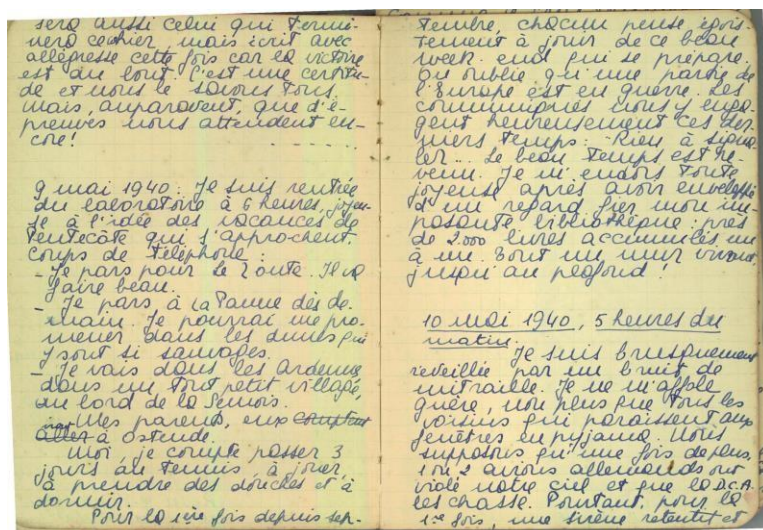 sera aussi celui qui termi-
nera ce cahier, mais écrit avec
allégresse cette fois car la victoire
est au bout. C'est une certitu-
de et nous le savons tous,
mais, auparavant, que d'é-
preuves nous attendent en-
core!
. . . . . .
9 mai 1940. Je suis rentrée
du laboratoire à 6 heures, joyeu-
se à l'idée des vacances de
Pentecôte qui s'approchent.
Coups de téléphone:
- Je pars pour le Zoute. Il va
faire beau.
- Je pars, à La Panne dès de-
main. Je pourrai me pro-
mener dans les dunes qui
y sont si sauvages.
- Je vais dans les Ardennes
dans un tout petit village,
au bord de la Semois.
Mes parents, eux comptent
aller à Ostende.
Moi, je compte passer 3
jours au tennis à jouer,
à prendre des douches et à
dormir.
Pour la 1ère fois depuis sep-
tembre, chacun pense égoïs-
tement à jouir de ce beau
week-end qui se prépare,
on oublie qu'une partie de
l'Europe est en guerre. Les
communiqués nous y enga-
gent heureusement ces der-
niers temps: - Rien à signa-
ler... Le beau temps est re-
venu. Je m'endors toute
joyeuse après avoir enveloppé
d'un regard fier mon im-
posante bibliothèque: près
de 2.000 livres accumulés un
à un. Sont un mur vivant,
jusqu'au plafond!
10 mai 1940, 5 heures du
matin.
Je suis brusquement
réveillée par un bruit de
mitraille. Je ne m'affole
guère, non plus que tous les
voisins qui paraissent aux
fenêtres en pyjama. Nous
supposons qu'une fois de plus,
1 ou 2 avions allemands ont
violé notre ciel et que la D.C.A.
les chasse. Pourtant, pour la
1re fois, une sirène retentit et